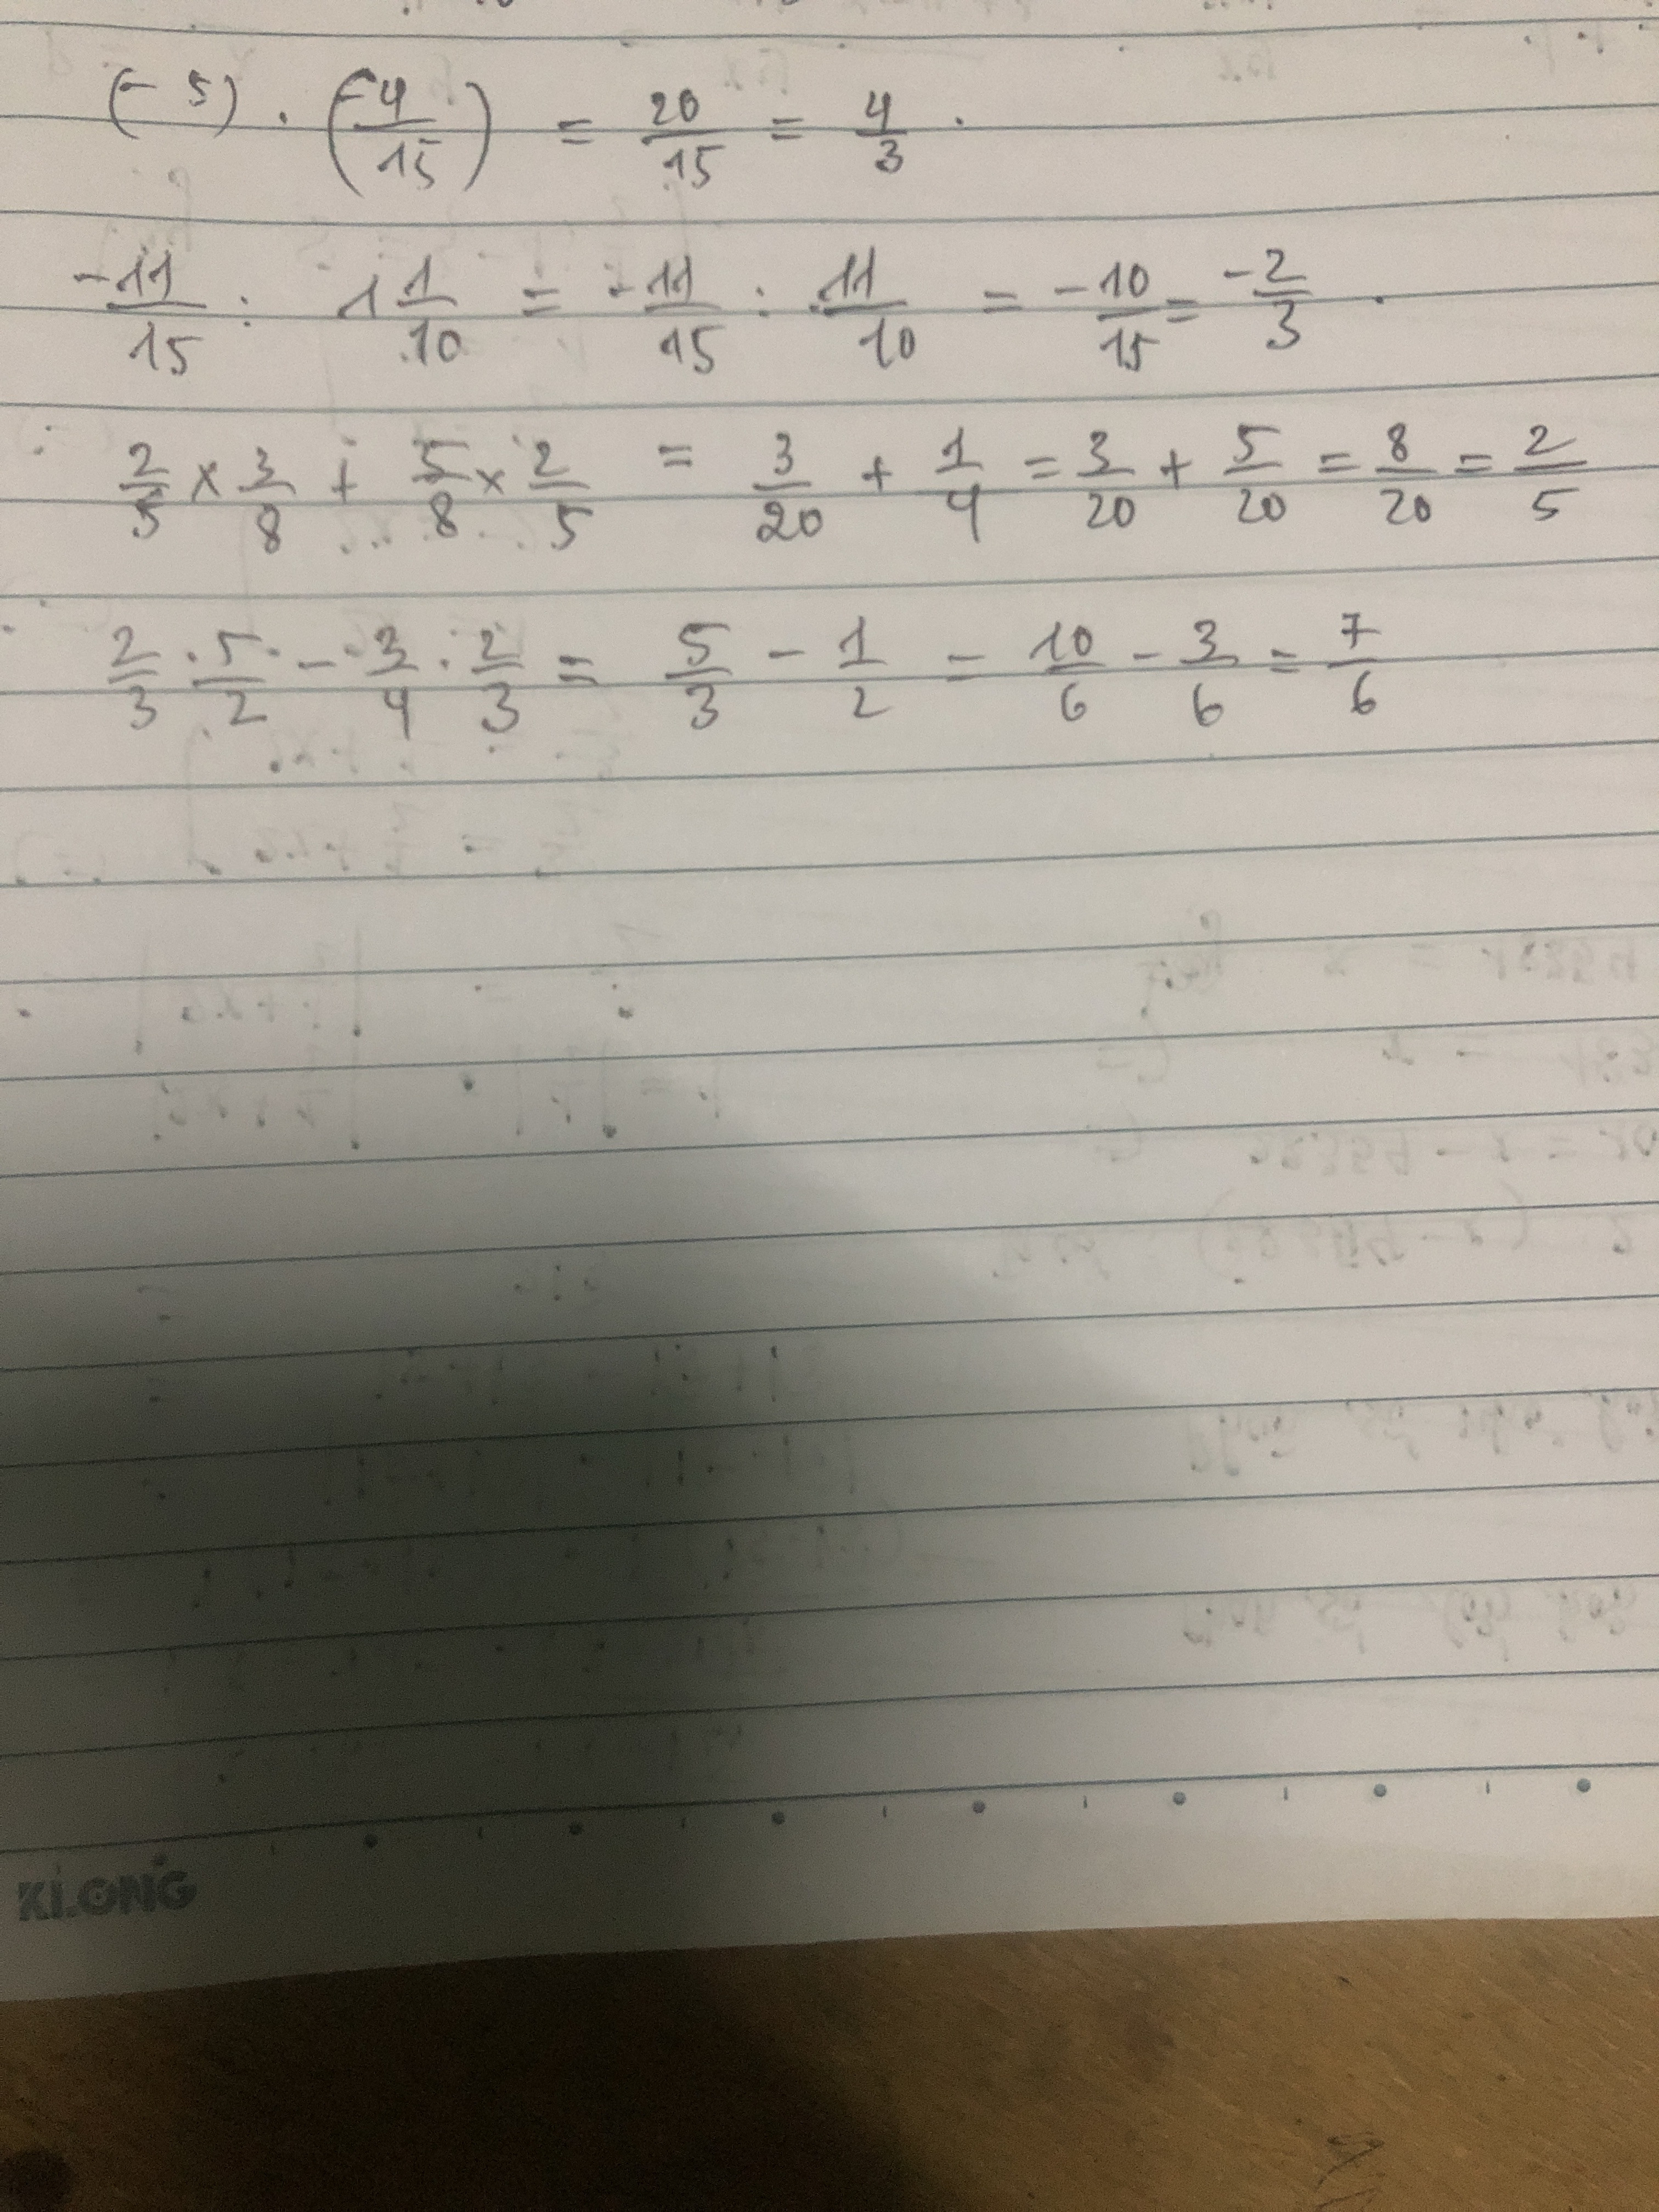 (-5) . (-4/15) = 20/15 = 4/3 .
-11/15 : 1 1/10 = -11/15 : 11/10 = -10/15 = -2/3 .
2/5 x 3/8 + 5/8 x 2/5 = 3/20 + 1/4 = 3/20 + 5/20 = 8/20 = 2/5
2/3 . 5/2 - 3/4 . 2/3 = 5/3 - 1/2 = 10/6 - 3/6 = 7/6
KLONG